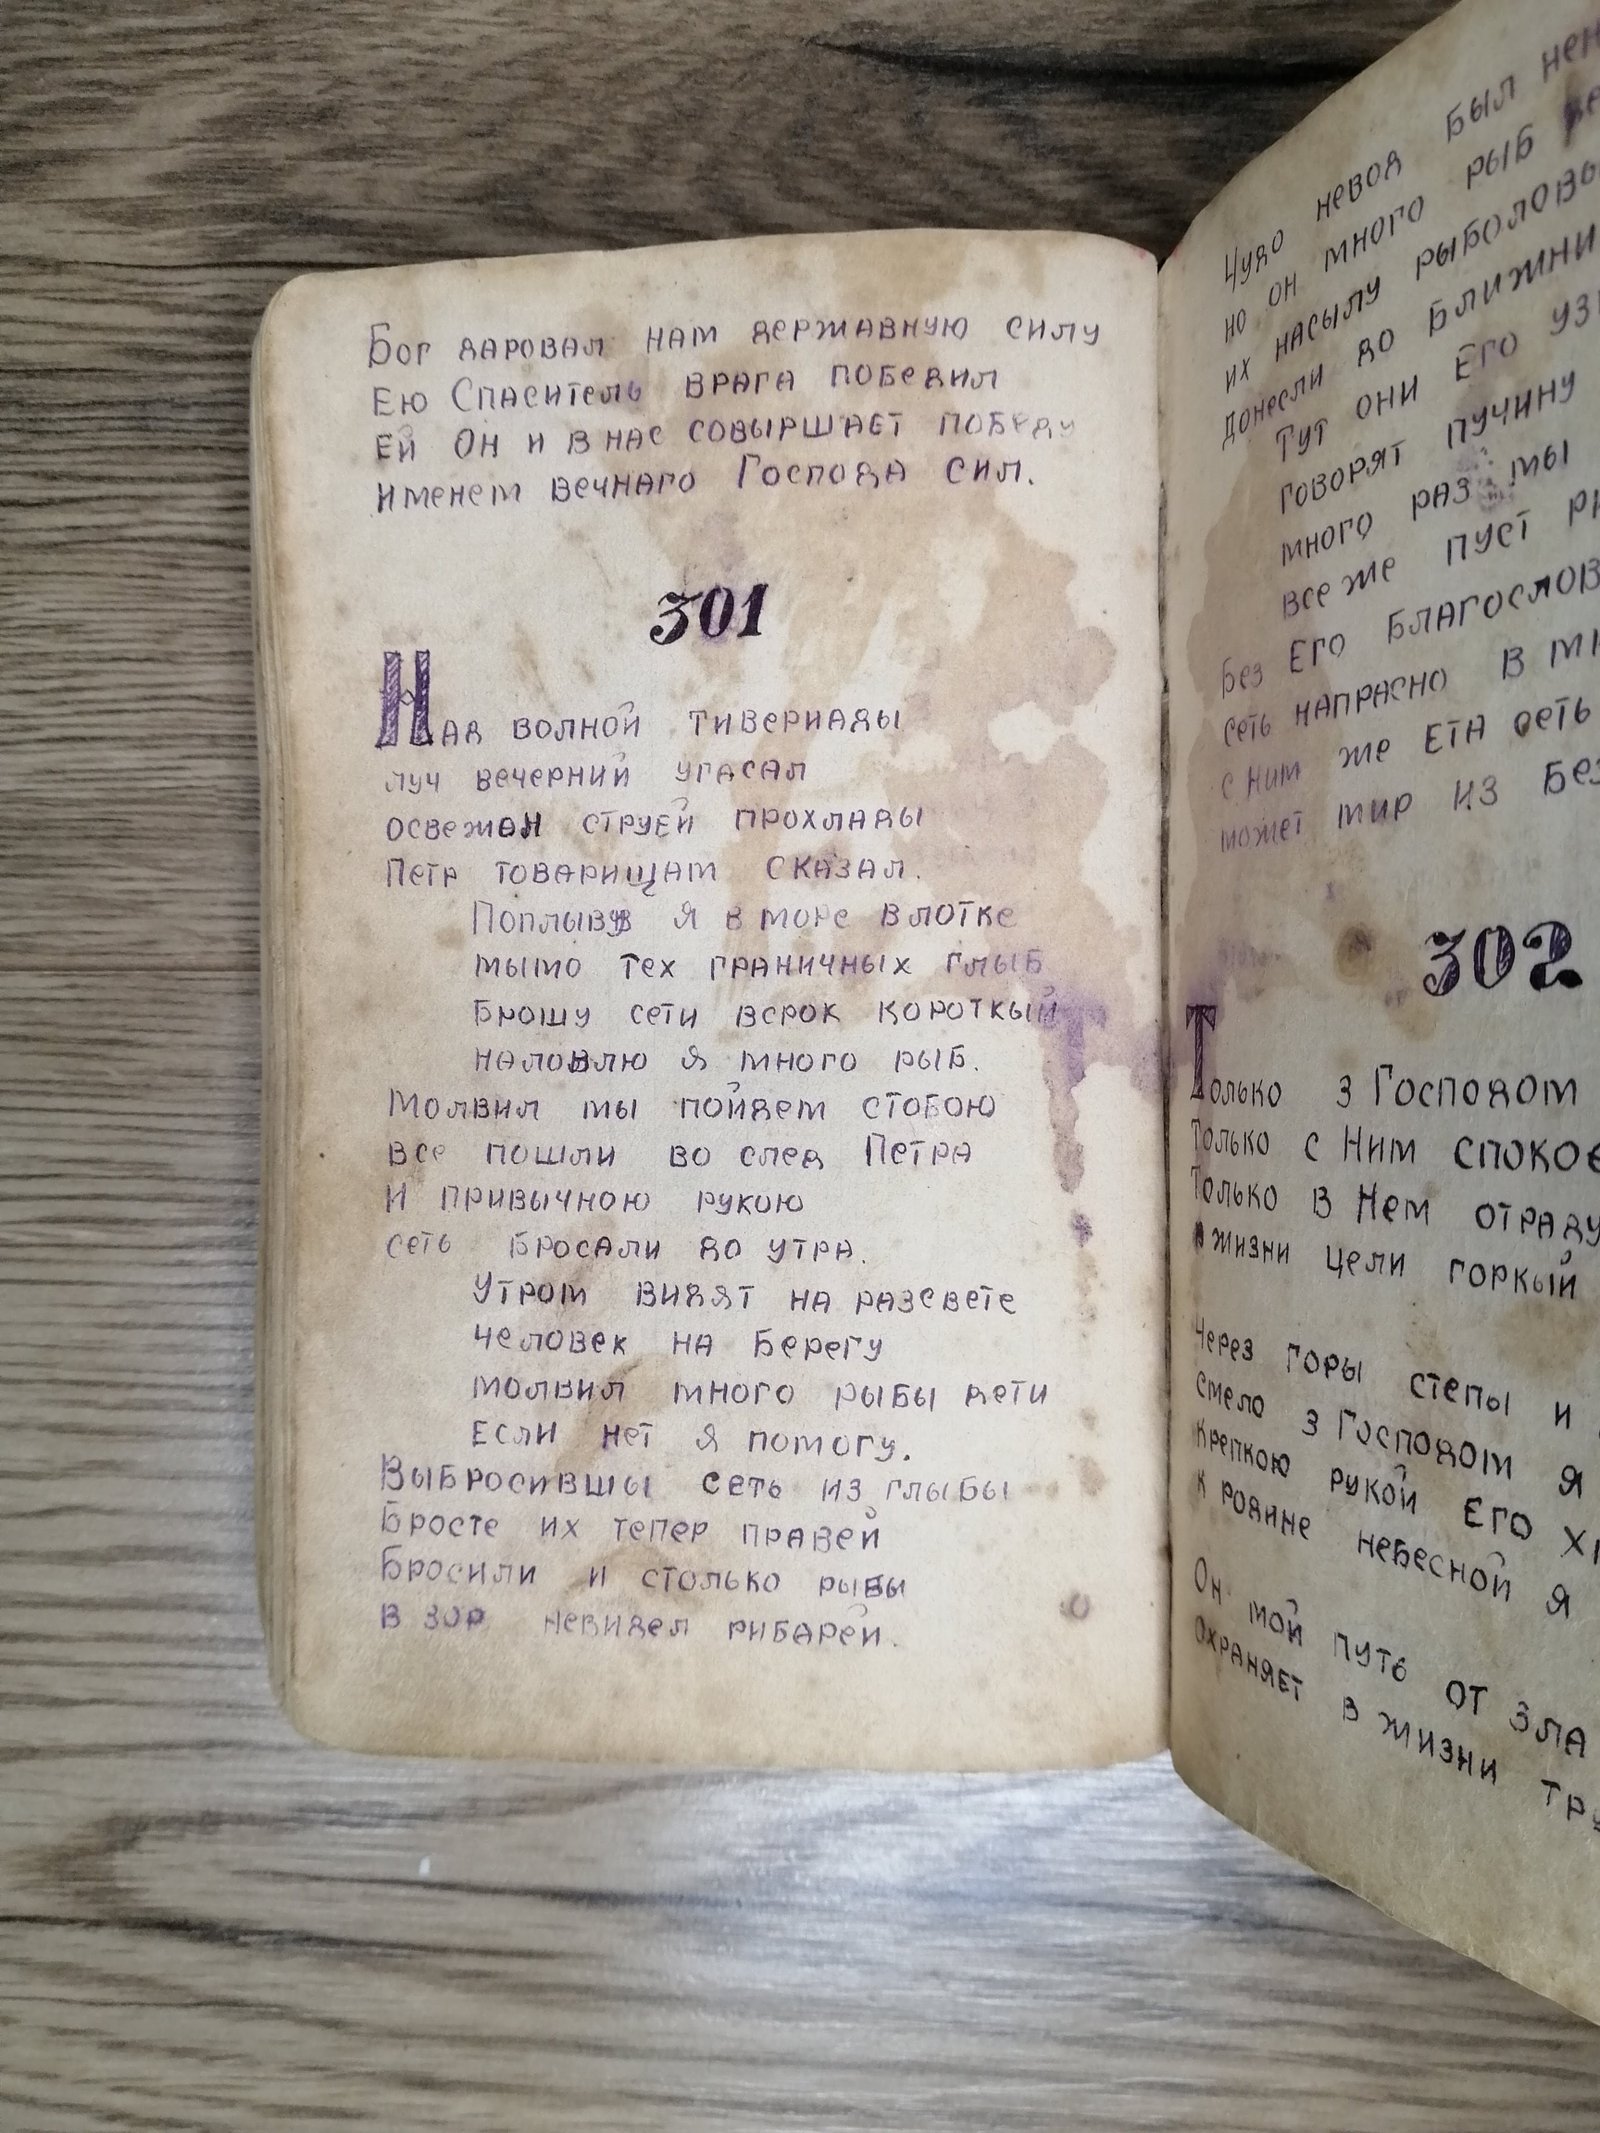 Бог даровал нам державную силу
Ею Спаситель врага победил
Ей Он и в нас совыршает победу
именем вечнаго Господа сил.
301
Над волной тивериады
луч вечерний угасал
освежан струей прохлады
Петр товарищам сказал.
Поплыву я в море влотке
мымо тех граничных глыб
Брошу сети всрок короткый
наловлю я много рыб.
Молвил мы пойдем стобою
все пошли во след Петра
И привычною рукою
сеть бросали до утра.
Утром видят на разсвете
человек на берегу
молвил много рыбы дети
Если нет я помогу.
Выбросившы сеть из глыбы
Бросте их тепер правей
Бросили и столько рыбы
в зор невидел рибарей.
Чудо невод был
но он много рыб
их насылу
донесли до
Тут они Его
говорят пучину
много раз мы
все же пуст
Без Его
сеть напрасно в
с Ним же ета сеть
может мир из
302
Только з Господом
Только с Ним
Только в Нем
жизни цели горкый
Через горы степы и
смело з Господом я
крепкою рукой Его
к родине небесной я
Он мой путь от зла
Охраняет в жизни